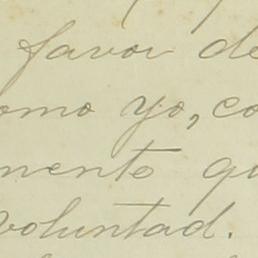 favor de
omo yo, co
mente qu
voluntad.